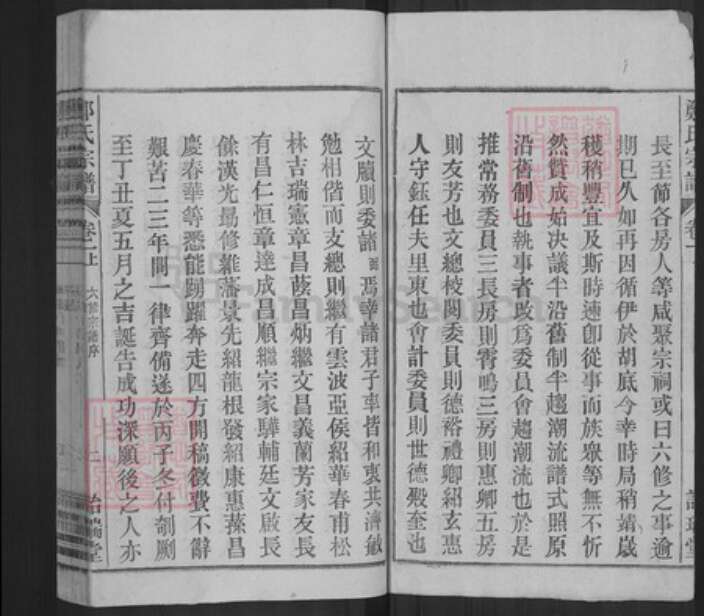 長至節各房人等咸聚宗祠或曰六修之事逾
期已久如再因循伊於胡底今幸時局稍靖歲
穫稍豐宜及斯時速卽從事而族眾等無不忻
然贊成始决議半沿舊制半趨潮流譜式照原
沿舊制也執事者改爲委員會趨潮流也於是
推常務委員三長房則霄鳴三房則惠卿五房
則友芳也文總校閱委員則德裕禮卿紹玄惠
人守鈺任夫里東也會計委員則世德殿奎也
鄭氏宗譜 卷一上 六修宗譜序 二 詒謀堂
文牘則委諸 焉幸諸君子率皆和衷共濟敏
勉相偕而支總則繼有雲波亞侯紹華春甫松
林吉瑞憲章昌蔭昌炳繼文昌義蘭芳家友長
有昌仁恒章達成昌順繼宗家驊輔廷文啟長
餘漢光昜修維藩景先紹龍根發紹康惠蓀昌
慶春華等悉能踴躍奔走四方開稿徵費不辭
艱苦二三年間一律齊備遂於丙子冬付剞劂
至丁丑夏五月之吉誕告成功深願後之人亦
FamilySearch